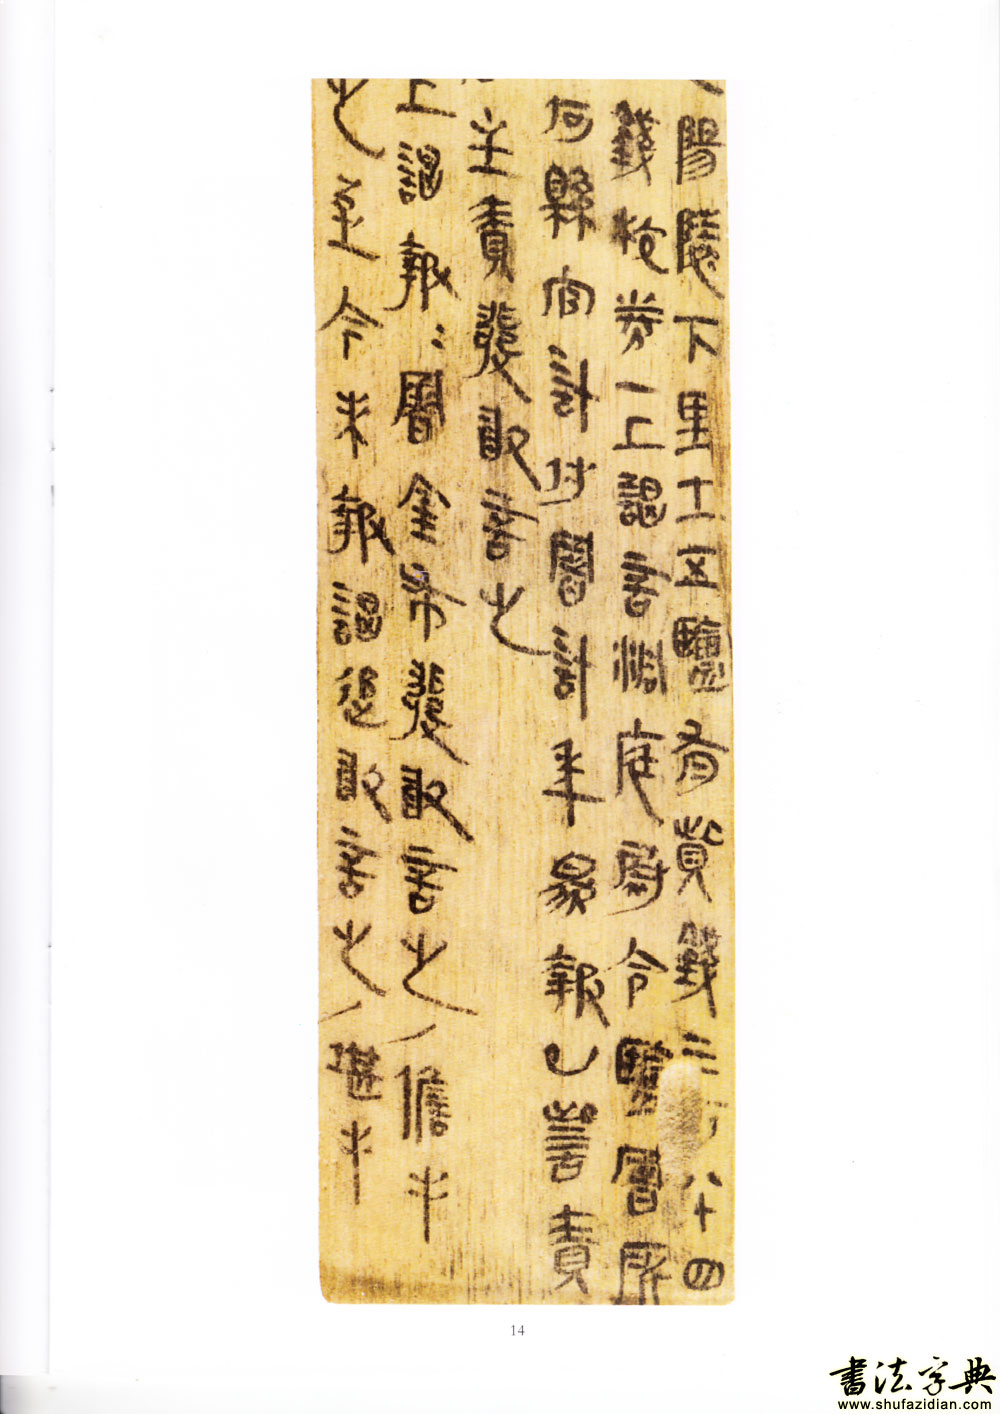 陽陵下里士五鹽有貲錢三百八十四
錢校券一上謁言洞庭尉令鹽署所
何縣官計付署計年為報已訾責
主責發敢言之
上謁報=署金布發敢言之/儋手
之至今未報謁追敢言之/堪手
14
書法字典
www.shufazidian.com